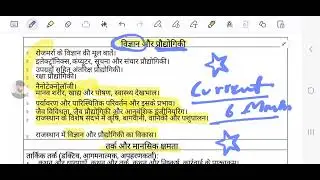 विज्ञान और प्रौद्योगिकी
रोजमर्रा के विज्ञान की मूल बातें।
इलेक्ट्रॉनिक्स, कंप्यूटर, सूचना और संचार प्रौद्योगिकी।
उपग्रहों सहित अंतरिक्ष प्रौद्योगिकी।
रक्षा प्रौद्योगिकी।
नैनोटेक्नोलॉजी।
मानव शरीर, खाद्य और पोषण, स्वास्थ्य देखभाल।
पर्यावरण और पारिस्थितिक परिवर्तन और इसके प्रभाव।
जैव विविधता, जैव प्रौद्योगिकी और आनुवंशिक इंजीनियरिंग।
राजस्थान के विशेष संदर्भ में कृषि, बागवानी, वानिकी और पशुपालन।
राजस्थान में विज्ञान और प्रौद्योगिकी का विकास।
तर्क और मानसिक क्षमता
तार्किक तर्क (डक्टिव, आगमनात्मक, अपहरणकर्ता):
Current
6 Months